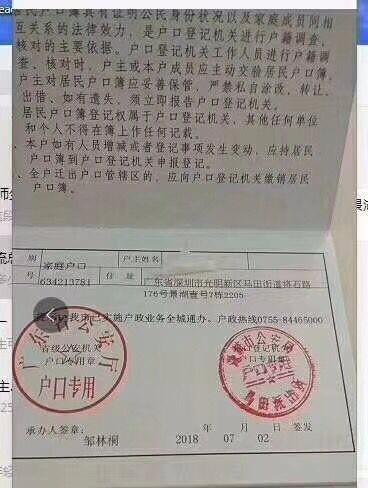 居民户口簿具有证明公民身份状况以及家庭成员间相
互关系的法律效力，是户口登记机关进行户籍调查、
核对的主要依据。户口登记机关工作人员进行户籍调
查、核对时，户主或本户成员应主动交验居民户口簿。
户主对居民户口簿应妥善保管，严禁私自涂改、转让、
出借、如有遗失，须立即报告户口登记机关。
居民户口簿登记权属于户口登记机关，其他任何单位
和个人不得在簿上作任何记载。
、本户如有人员增减或者登记事项发生变动，应持居民
户口簿到户口登记机关申报登记。
、全户迁出户口管辖区的，应向户口登记机关缴销居民
户口簿。
别 家庭户口 户主姓名
号 634213781 住址 广东省深圳市光明新区马田街道将石路
176号景湖壹号7栋2205
我市已实施户政业务全城通办。户政热线0755-84465000
广东省公安厅
省级公安机关
户口专用章
户口专用
户口登记机关
户口专用章
承办人签章：
邹林桐
2018 年 07 月 02 日 签发